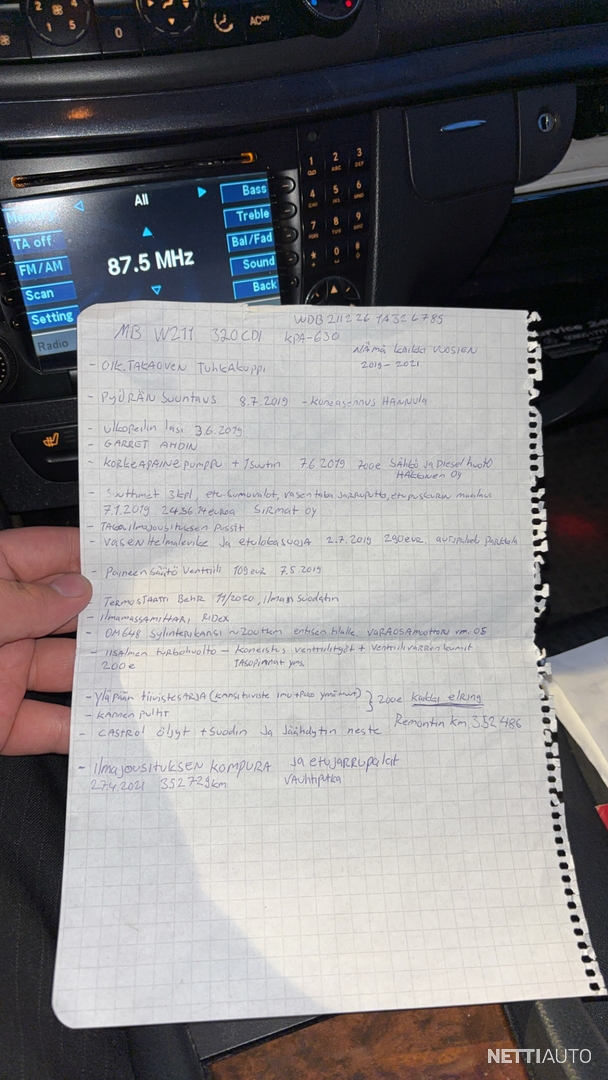 0
1
5
AC OFF
All
Bass
Treble
TA off
Bal/Fad
FM/AM
87.5 MHz
Sound
Scan
Back
Setting
Radio
1 2 3
4 5 6
7 8 9
* 0 #
MB W211 320CDI KPA-630
Nämä kaikki vuosien
2019-2021
- Oik. TAKAOVEN Tuhkakuppi
- PYÖRÄN Suuntaus 8.7.2019 - Koneasennus HANNULA
- Ulkopeilin lasi 3.6.2019
- GARRET AHDIN
- KORKEAPAINE pumppu + 1 suutin 7.6.2019 700e Sähkö ja Diesel huolto
HAKKINEN OY
- Suuttimet 3kpl, etu sumuvalot, vasen taka jarruputki, etupuskurin maalaus
7.1.2019 2436.14 euroa SIRMAT OY
- TAKA ilmajousituksen Pussit
- VASEN Helmalevike ja etulokasuoja 2.7.2019 290eur. autopalvelu
- Paineen Säätö Venttiili 109 eur 7.5.2019
- TERMOSTAATTI BEHR 11/2020, ilman suodatin
- ILMAMASSAMITTARI RIDEX
- OM648 Sylinterikansi ~200tkm entisen tilalle VARAOSAmoottori vm. 05
- IISALMEN turbohuolto - koneistus venttiilityöt + venttiilivarren kumit
200e TASOPINNAT yms.
- Yläpään tiivisteSARJA (kansitiiviste imu+pako ymmuut) } 200e kaikki elRING
- KANNEN PULTIT
Remontin km. 352 486
- CASTROL öljyt + suodin ja Jäähdytin neste
- ILMAJOUSITUKSEN KOMPURA ja etujarrupalat
27.4.2021 352729km
NETTIAUTO